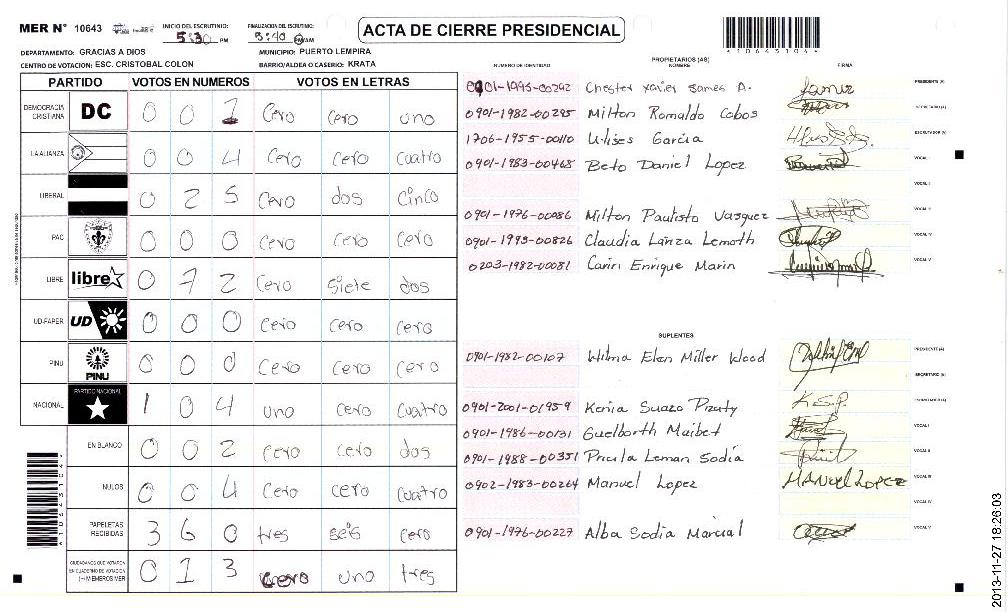 MER N° 10643 INICIO DEL ESCRUTINIO: 5:30 PM FINALIZACION DEL ESCRUTINIO: 8:40 PM/AM
ACTA DE CIERRE PRESIDENCIAL
DEPARTAMENTO: GRACIAS A DIOS MUNICIPIO: PUERTO LEMPIRA
CENTRO DE VOTACION: ESC. CRISTOBAL COLON BARRIO/ALDEA O CASERIO: KRATA
PARTIDO VOTOS EN NUMEROS VOTOS EN LETRAS
DEMOCRACIA CRISTIANA DC 0 0 1 Cero cero uno
LA ALIANZA 0 0 4 Cero cero cuatro
LIBERAL 0 2 5 cero dos cinco
PAC 0 0 0 cero cero cero
LIBRE libre 0 7 2 cero siete dos
UD-FAPER UD 0 0 0 cero cero cero
PINU PINU 0 0 0 cero cero cero
NACIONAL PARTIDO NACIONAL 1 0 4 uno cero cuatro
EN BLANCO 0 0 2 cero cero dos
NULOS 0 0 4 cero cero cuatro
PAPELETAS RECIBIDAS 3 6 0 tres seis cero
CIUDADANOS QUE VOTARON EN CUADERNO DE VOTACION (+) MIEMBROS MER 0 1 3 cero uno tres
PROPIETARIOS (AS)
NUMERO DE IDENTIDAD NOMBRE FIRMA
0901-1995-00292 Chester Xavier James A. PRESIDENTE (A)
0901-1982-00295 Milton Romaldo Cobos SECRETARIO (A)
1706-1955-00110 Ulises Garcia ESCRUTADOR (A)
0901-1983-00468 Beto Daniel Lopez VOCAL I
VOCAL II
0901-1976-00086 Milton Pautisto Vasquez VOCAL III
0901-1995-00826 Claudia Lanza Lemoth VOCAL IV
0203-1982-00081 Carin Enrique Marin VOCAL V
SUPLENTES
0901-1982-00107 Wilma Elan Miller Wood PRESIDENTE (A)
SECRETARIO (A)
0901-2001-01959 Kenia Suazo K.S.P. ESCRUTADOR (A)
0901-1986-00131 Guelborth Maibet VOCAL I
0901-1988-00351 Priula Leman Sodia VOCAL II
0902-1983-00264 Manuel Lopez MANUEL LOPEZ VOCAL III
VOCAL IV
0901-1976-00227 Alba Sodia Marcial VOCAL V
2013-11-27 18:26:03